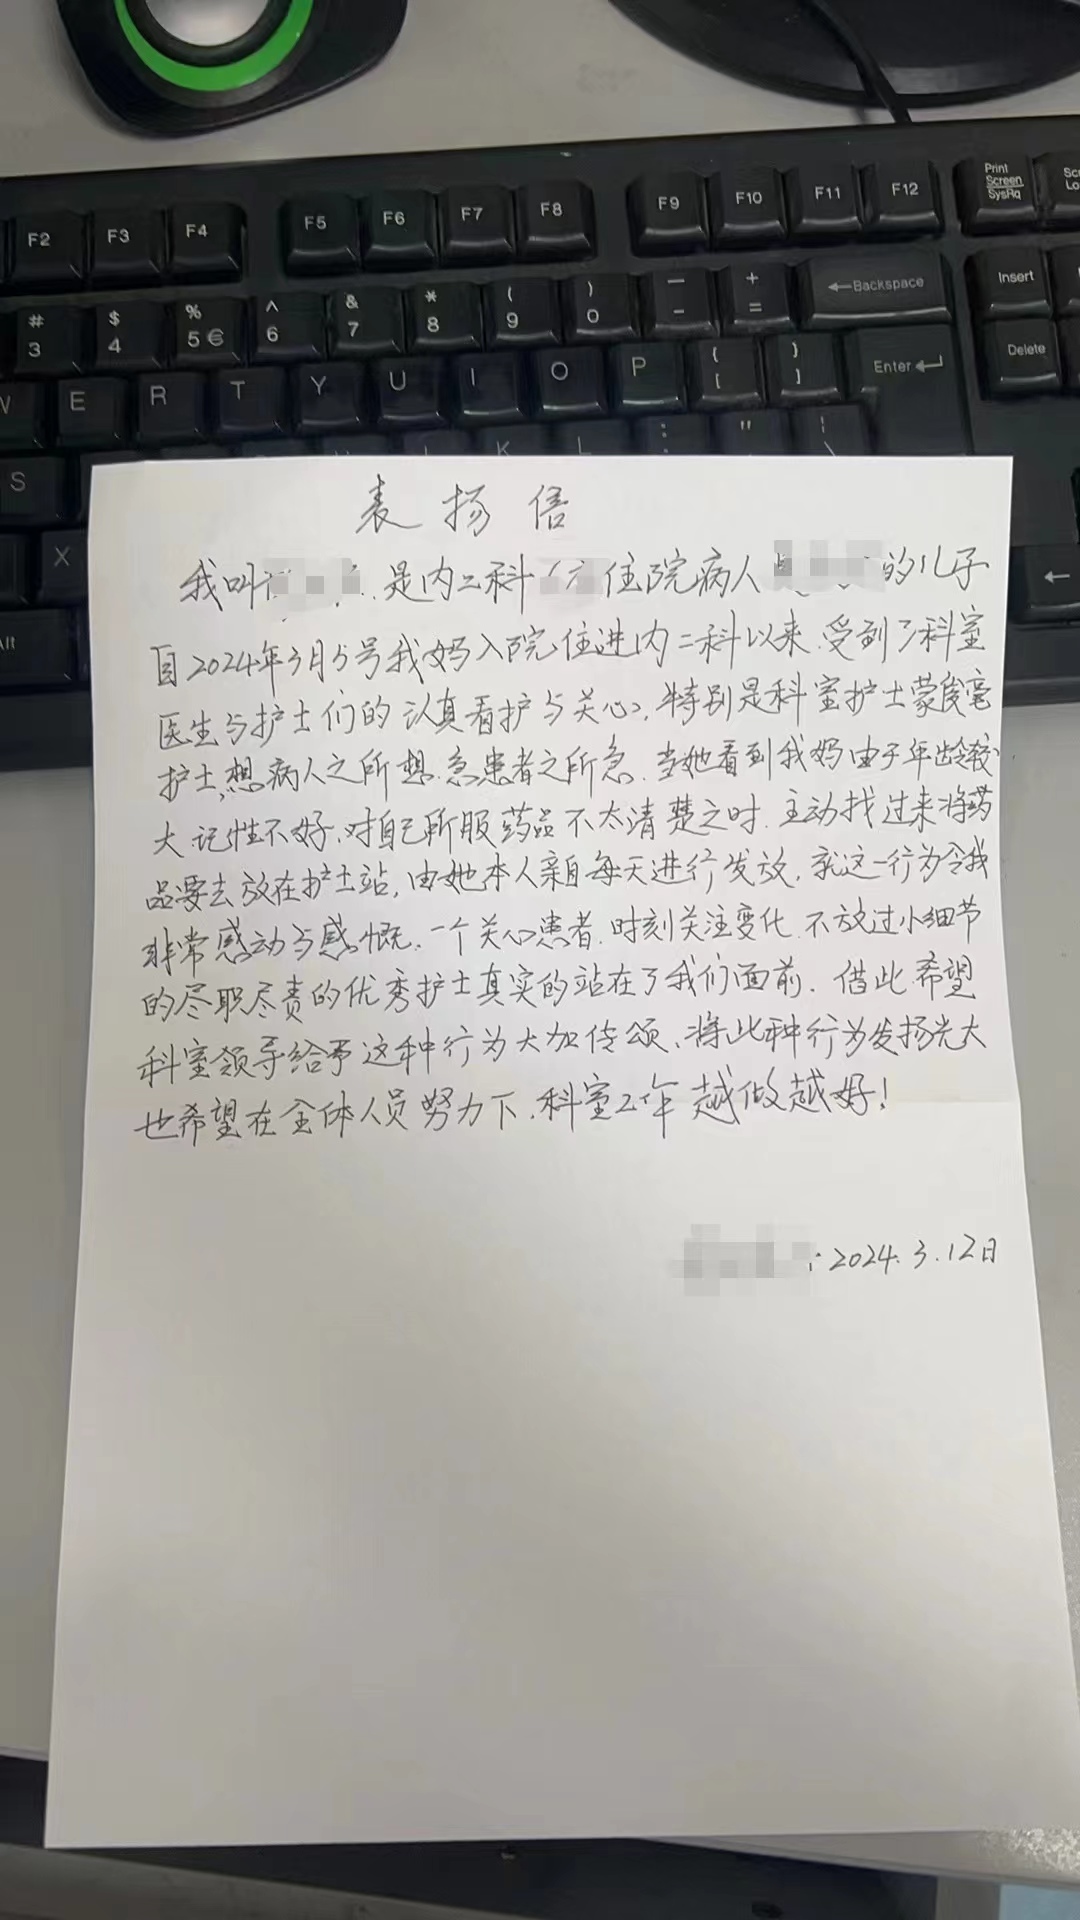 F2 F3 F4 F5 F6 F7 F8 F9 F10 F11 F12 Print Screen SysRq
# 3 $ 4 % 5 € ^ 6 & 7 * 8 ( 9 ) 0 — - + = ←Backspace Insert
W E R T Y U I O P { [ } ] Enter Delete
S K L : " |
X ←
Alt
表扬信
我叫 是内二科 住院病人 的儿子
自2024年3月5号我妈入院住进内二科以来.受到了科室
医生与护士们的认真看护与关心,特别是科室护士蒙俊毫
护士,想病人之所想.急患者之所急.当她看到我妈由于年龄较
大.记性不好,对自己所服药品不太清楚之时.主动找过来将药
品要去放在护士站,由她本人亲自每天进行发放,就这一行为令我
非常感动与感慨.一个关心患者.时刻关注变化.不放过小细节
的尽职尽责的优秀护士真实的站在了我们面前.借此希望
科室领导给予这种行为大加传颂,将此种行为发扬光大
也希望在全体人员努力下,科室工作越做越好!
2024.3.12日